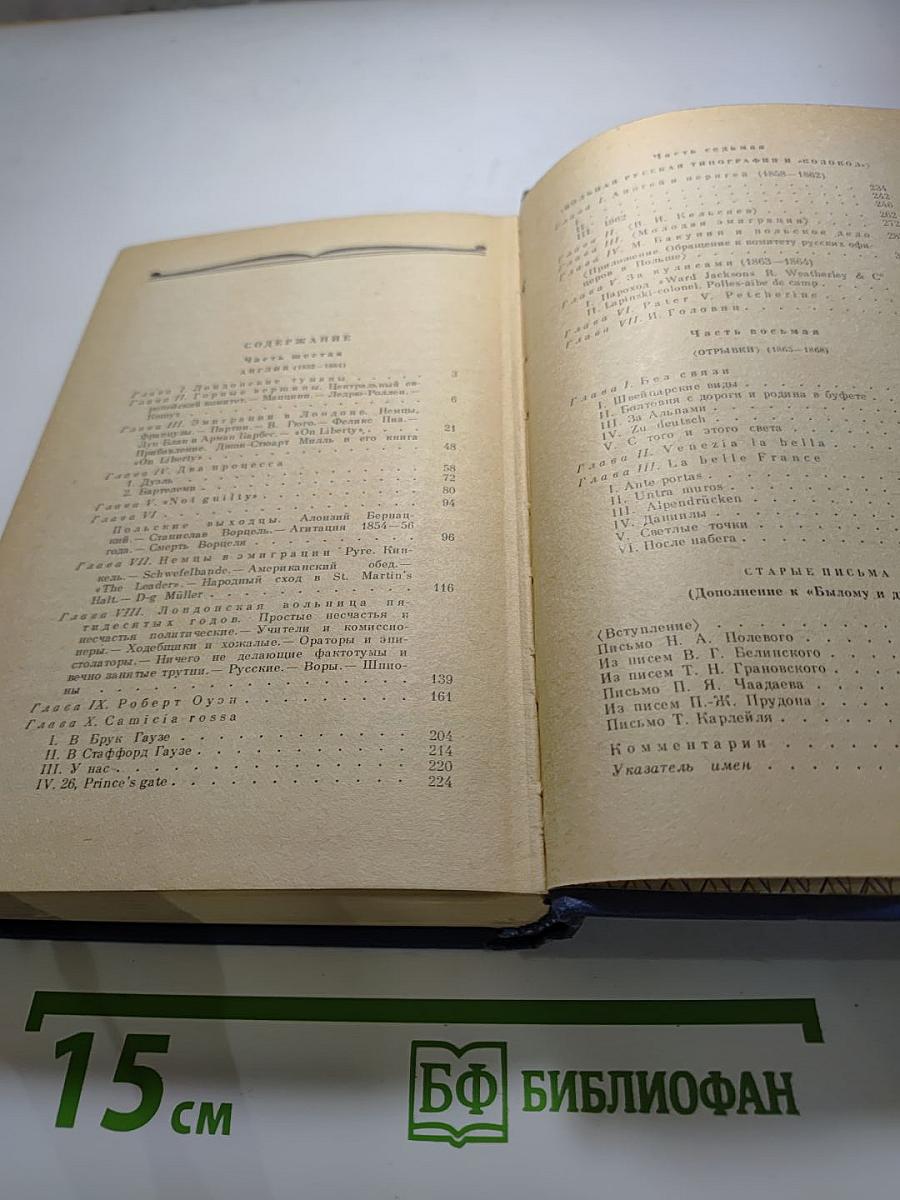 СОДЕРЖАНИЕ
Часть шестая
АНГЛИЯ (1852—1864)
Глава I. Лондонские туманы . . . . . . 3
Глава II. Горные вершины. Центральный ев-
ропейский комитет.— Маццини.— Ледрю-Роллен.—
Кошут . . . . . . 6
Глава III. Эмиграции в Лондоне. Немцы,
французы.— Партии.— В. Гюго.— Феликс Пиа.—
Луи Блан и Арман Барбес.— «On Liberty» . . . . . 21
Прибавление. Джон-Стюарт Милль и его книга
«On Liberty» . . . . . . 48
Глава IV. Два процесса
1. Дуэль . . . . . . 58
2. Бартелеми . . . . . . 72
Глава V. «Not guilty» . . . . . . 80
Глава VI . . . . . . 94
Польские выходцы. Алоизий Бернац-
кий.— Станислав Ворцель.— Агитация 1854—56
года.— Смерть Ворцеля . . . . . . 96
Глава VII. Немцы в эмиграции Руге. Кин-
кель.— Schwefelbande.— Американский обед.—
«The Leader».— Народный сход в St. Martin's
Halt.— D-g Müller . . . . . . 116
Глава VIII. Лондонская вольница пя-
тидесятых годов. Простые несчастья и
несчастья политические.— Учители и комиссио-
неры.— Ходебщики и хожалые.— Ораторы и эпи-
столаторы.— Ничего не делающие фактотумы и
вечно занятые трутни.— Русские.— Воры.— Шпио-
ны . . . . . . 139
Глава IX. Роберт Оуэн . . . . . . 161
Глава X. Camicia rossa
I. В Брук Гаузе . . . . . . 204
II. В Стаффорд Гаузе . . . . . . 214
III. У нас . . . . . . 220
IV. 26, Prince's gate . . . . . . 224
Часть седьмая
ВОЛЬНАЯ РУССКАЯ ТИПОГРАФИЯ И «КОЛОКОЛ»
Глава I. Апогей и перигей (1858—1862)
I. . . . . . 234
242
III. 1862 . . . . . . 246
Глава II. (В. И. Кельсиев) . . . . . . 262
Глава III. (Молодая эмиграция) . . . . . . 272
Глава IV. М. Бакунин и польское дело 28
(Приложение Обращение к комитету русских офи-
церов в Польше) . . . . . . 3
Глава V. За кулисами (1863—1864)
I. Пароход «Ward Jacksons R. Weatherley & C°
II. Lapinski-colonel. Polles-aibe de camp . . . .
Глава VI. Pater V. Petcherine . . . .
Глава VII. И. Головин . . . . .
Часть восьмая
(ОТРЫВКИ) (1865—1868)
Глава I. Без связи
I. Швейцарские виды . . . . .
II. Болтовня с дороги и родина в буфете . . .
III. За Альпами . . . . .
IV. Zu deutsch . . . . .
V. С того и этого света . . . . .
Глава II. Venezia la bella . . . .
Глава III. La belle France
I. Ante portas . . . . .
II. Untra muros . . . . .
III. Alpendrücken . . . . .
IV. Даниилы . . . . .
V. Светлые точки . . . . .
VI. После набега . . . . .
СТАРЫЕ ПИСЬМА
(Дополнение к «Былому и д
⟨Вступление⟩ . . . . .
Письмо Н. А. Полевого . . . . .
Из писем В. Г. Белинского . . . . .
Из писем Т. Н. Грановского . . . . .
Письмо П. Я. Чаадаева . . . . .
Из писем П.-Ж. Прудона . . . . .
Письмо Т. Карлейля . . . . .
Комментарии . . . . .
Указатель имен . . . . .
15 см
БФ БИБЛИОФАН